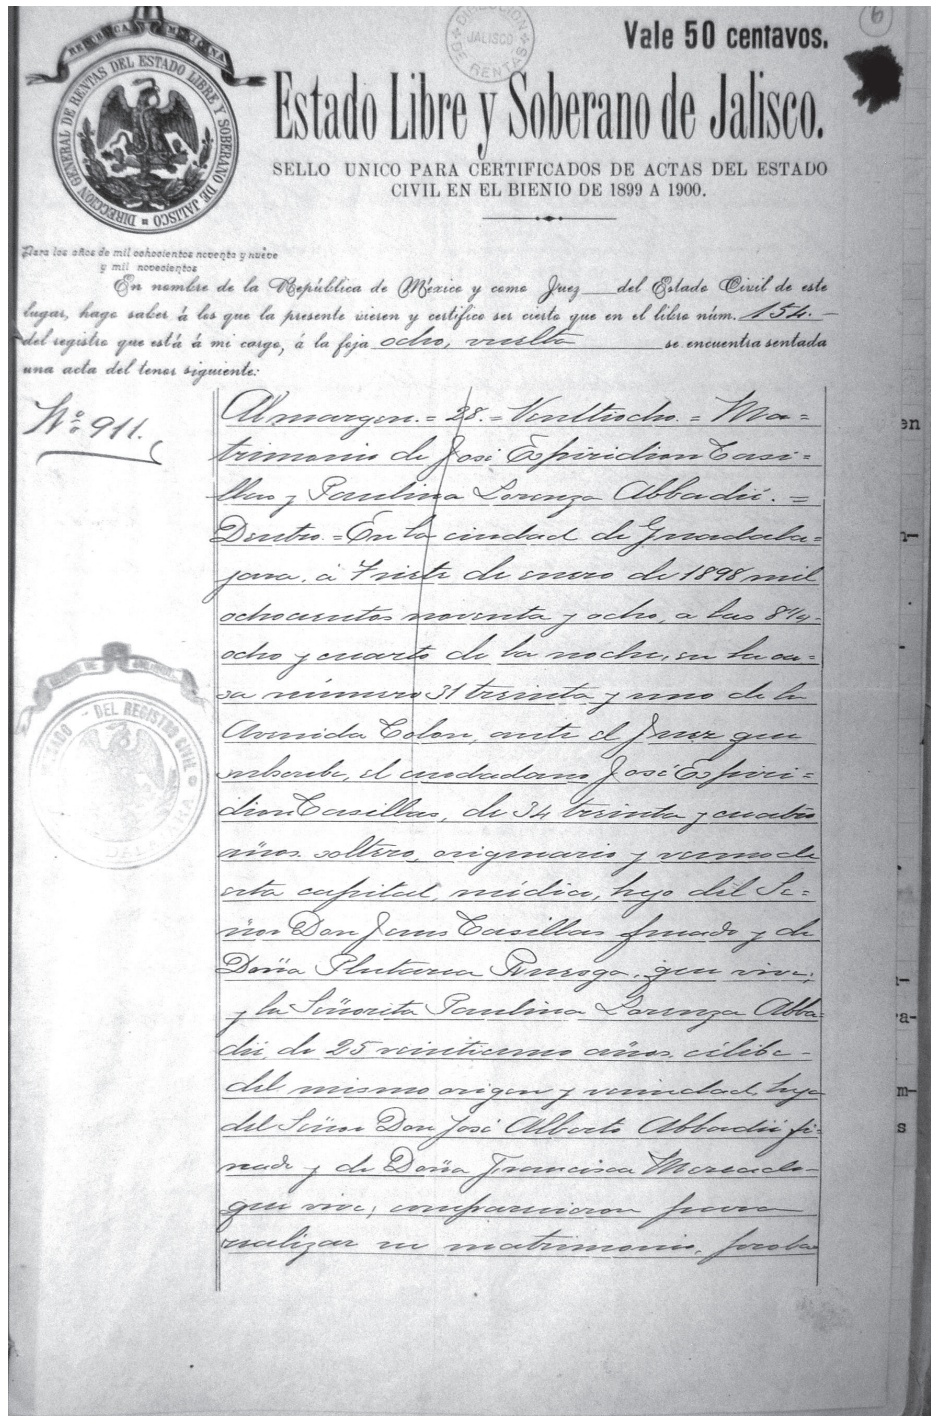 6
DIRECCION DE RENTAS
JALISCO
Vale 50 centavos.
REPUBLICA MEXICANA
DIRECCION GENERAL DE RENTAS DEL ESTADO LIBRE Y SOBERANO DE JALISCO
Estado Libre y Soberano de Jalisco.
SELLO UNICO PARA CERTIFICADOS DE ACTAS DEL ESTADO
CIVIL EN EL BIENIO DE 1899 A 1900.
Para los años de mil ochocientos noventa y nueve
y mil novecientos
En nombre de la República de México y como Juez del Estado Civil de este
lugar, hago saber á los que la presente vieren y certifico ser cierto que en el libro núm. 154.
del registro que está á mi cargo, á la foja ocho, vuelta se encuentra sentada
una acta del tenor siguiente:
Nº 911.
Al margen.=28.=Veintiocho.=Ma=
trimonio de José Espiridion Casi=
llas y Paulina Lorenza Abbadié.=
Dentro.=En la ciudad de Guadala=
jara, á 7 siete de enero de 1898 mil
ochocientos noventa y ocho, a las 8 1/4
ocho y cuarto de la noche, en la ca=
sa número 31 treinta y uno de la
Avenida Colon, ante el Juez que
subscribe, el ciudadano José Espiri=
dion Casillas, de 34 treinta y cuatro
años, soltero, originario y vecino de
esta capital, médico, hijo del Se=
ñor Don Jesus Casillas finado y de
Doña Plutarca que vive;
y la Señorita Paulina Lorenza Abba=
dié, de 25 veinticinco años, célibe
del mismo origen y vecindad, hija
del Señor Don José Alberto Abbadié fi=
nado y de Doña Francisca Mercado
que vive; comparecieron para
realizar su matrimonio,
DEL REGISTRO CIVIL